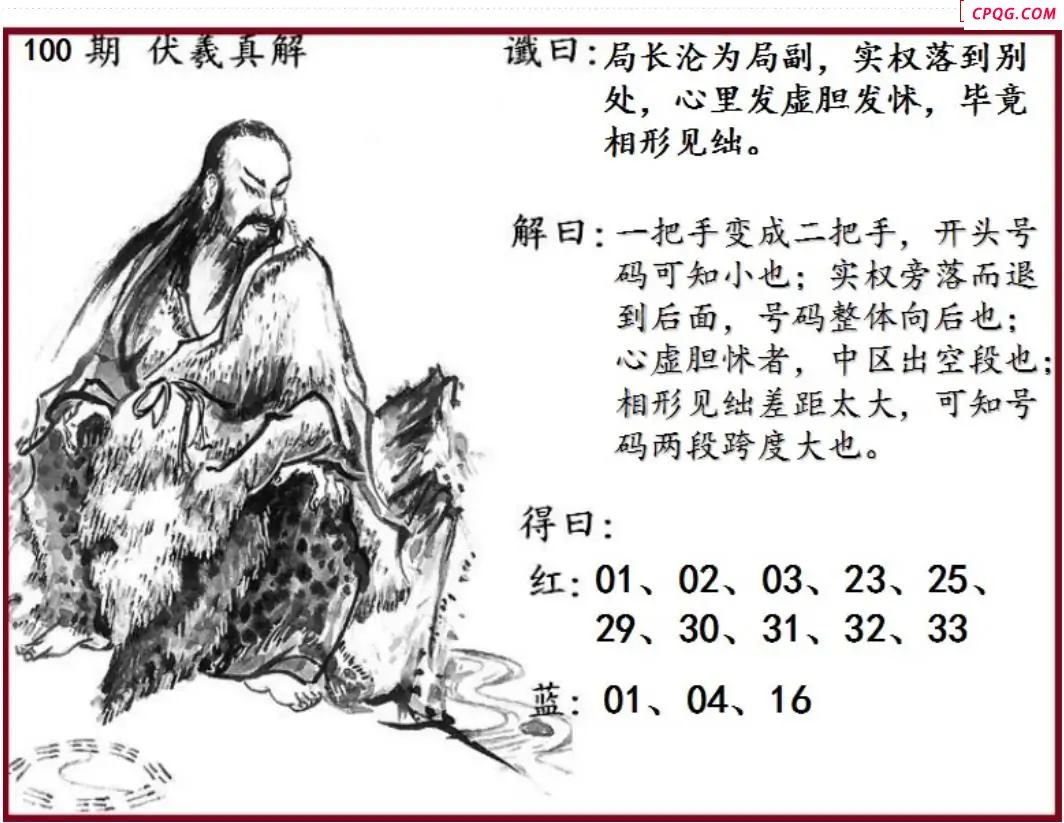 CPQG.COM
100 期 伏羲真解
谶曰:局长沦为局副，实权落到别
处，心里发虚胆发怵，毕竟
相形见绌。
解曰:一把手变成二把手，开头号
码可知小也；实权旁落而退
到后面，号码整体向后也；
心虚胆怵者，中区出空段也；
相形见绌差距太大，可知号
码两段跨度大也。
得曰:
红:01、02、03、23、25、
29、30、31、32、33
蓝:01、04、16